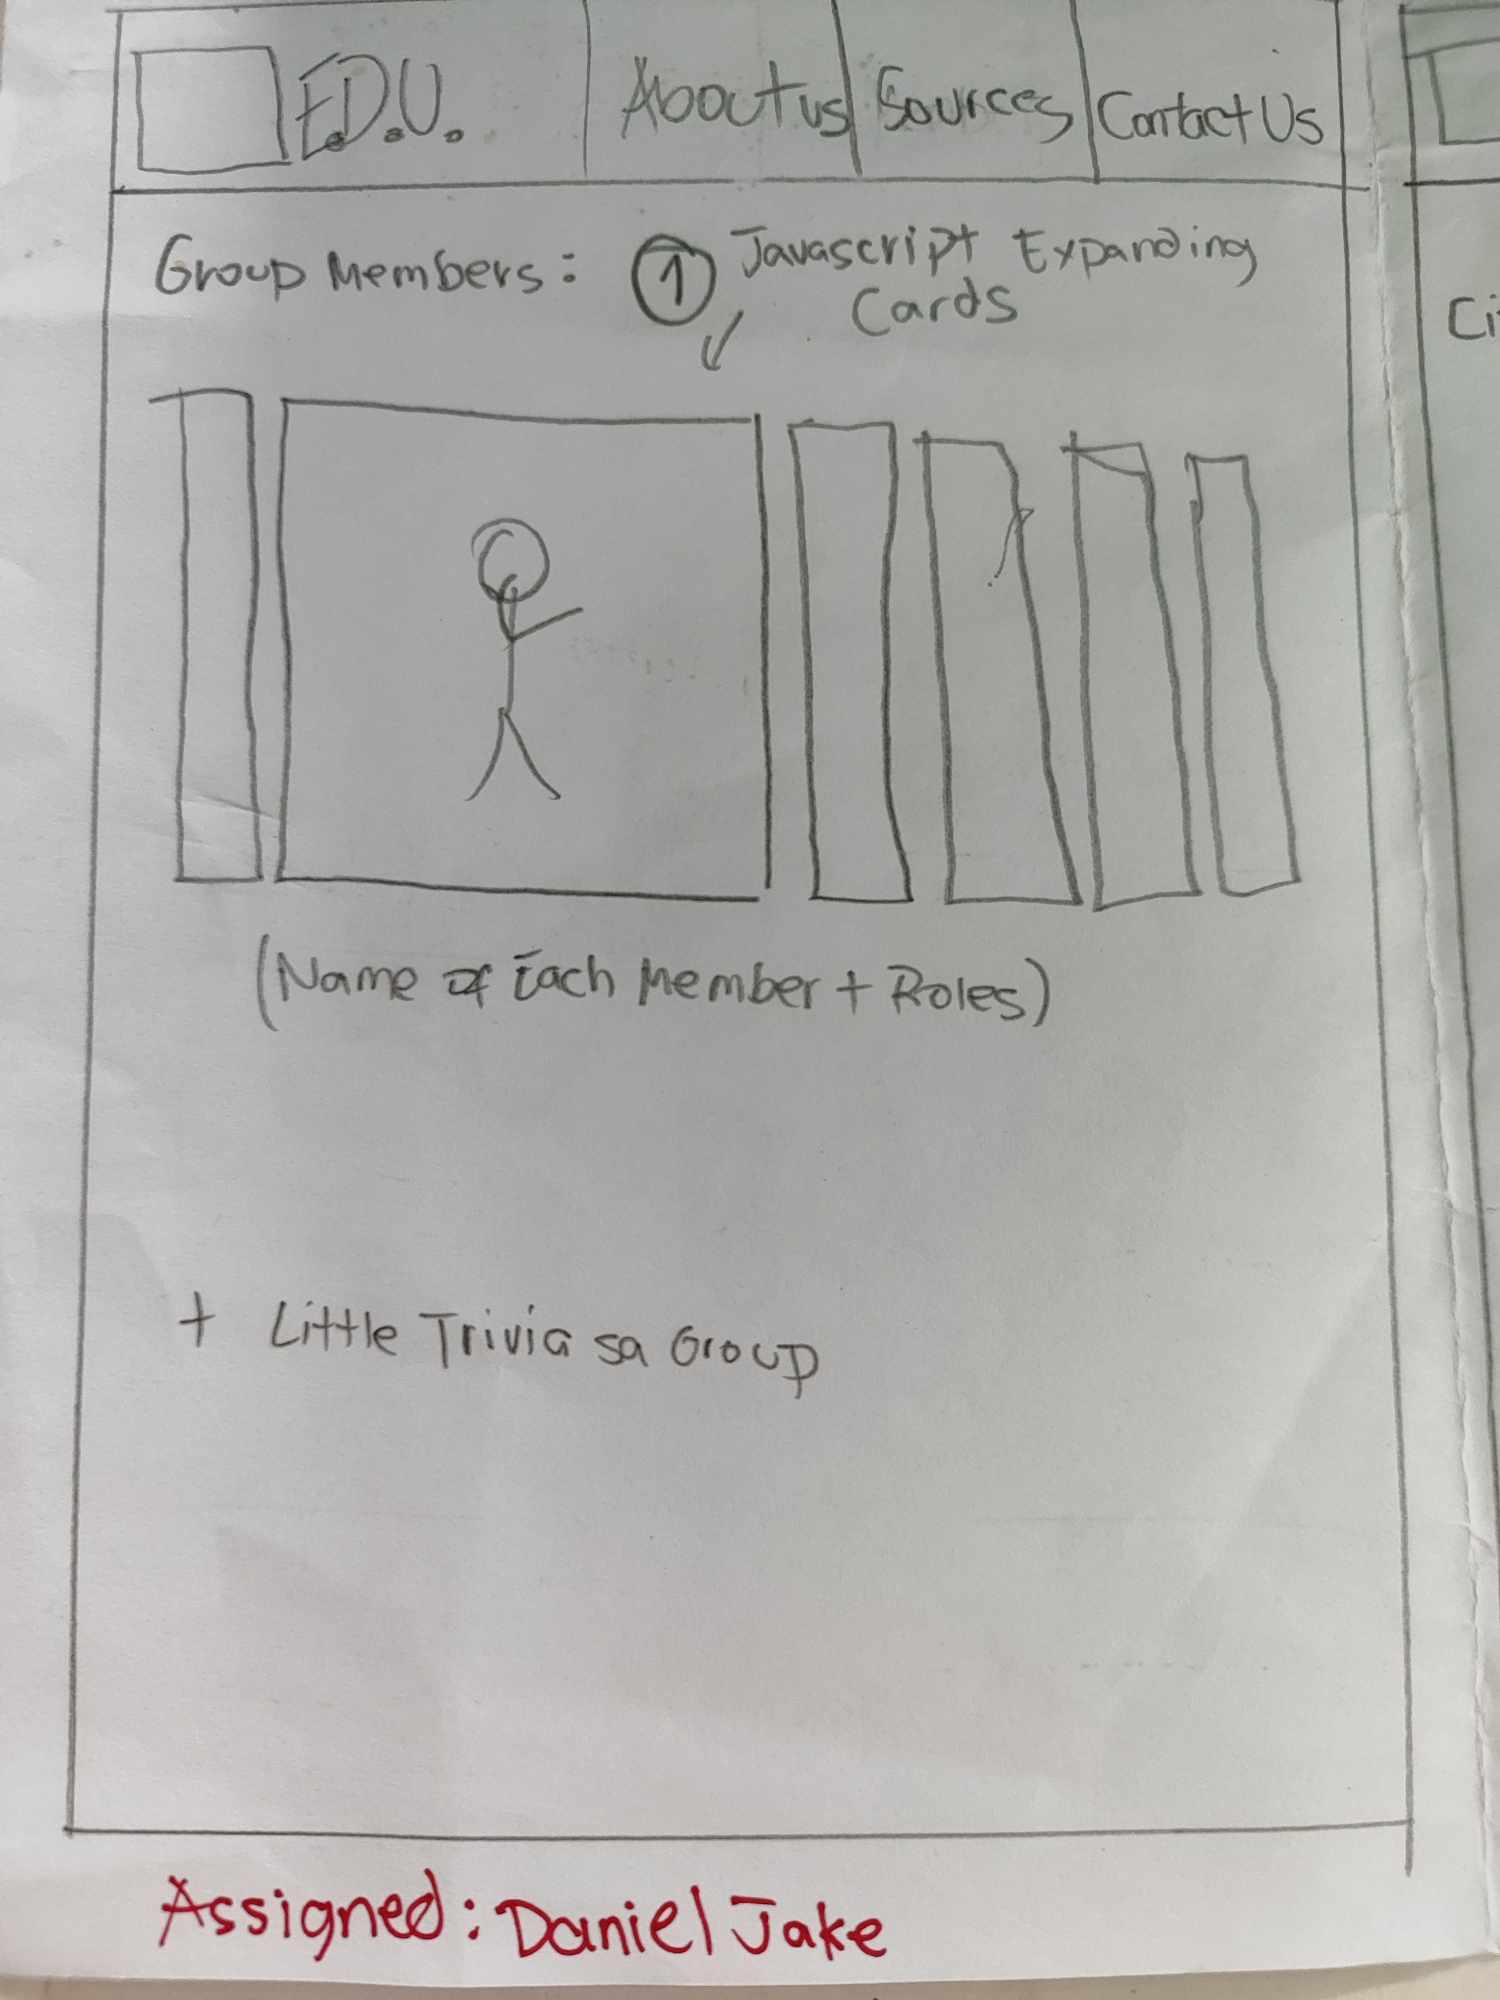 E.D.U. About us Sources Contact Us
Group Members: 1 Javascript Expanding
Cards
(Name of Each Member + Roles)
+ Little Trivia sa Group
Assigned: Daniel Jake